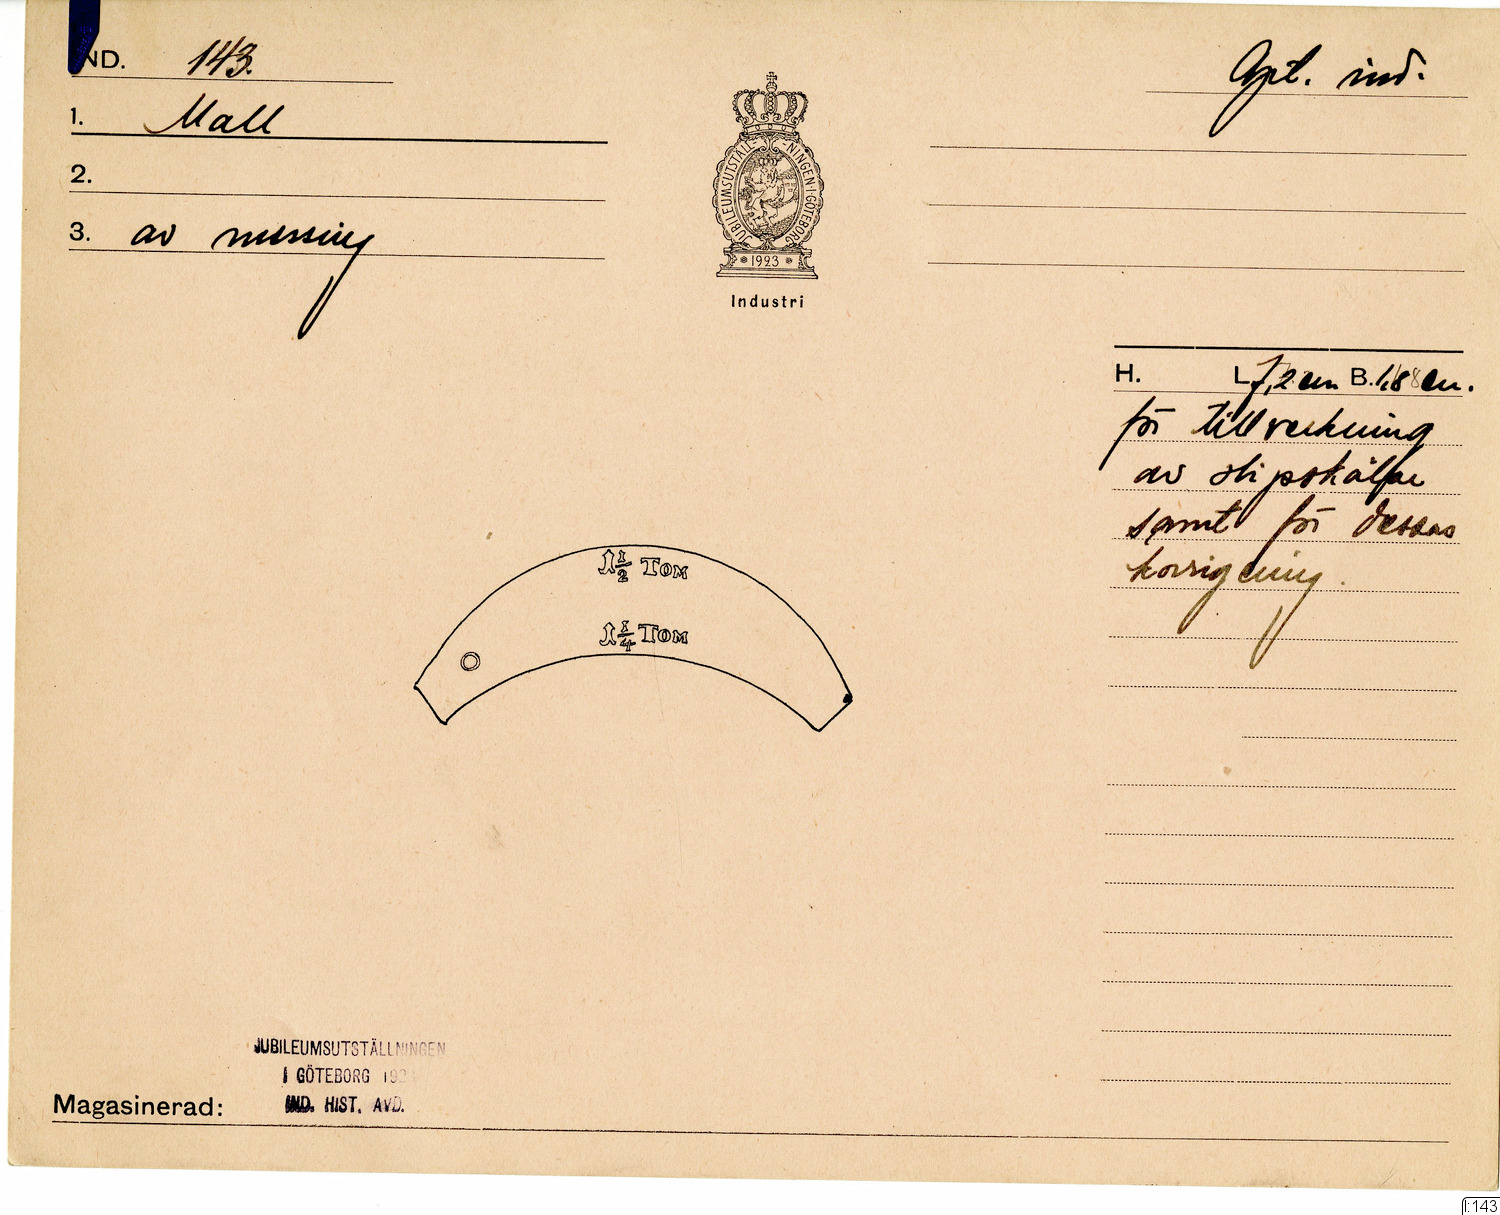 IND. 143.
Opt. ind.
1. Mall
2.
3. av messing
JUBILEUMSUTSTÄLL-NINGEN·I·GÖTEBORG
1923
Industri
H. L. 7,2 cm B. 1,8 cm.
för tillverkning
av slipskålar
samt för dessas
korrigering.
1 1/2 TOM
1 1/4 TOM
JUBILEUMSUTSTÄLLNINGEN
I GÖTEBORG 192
IND. HIST. AVD.
Magasinerad:
I:143